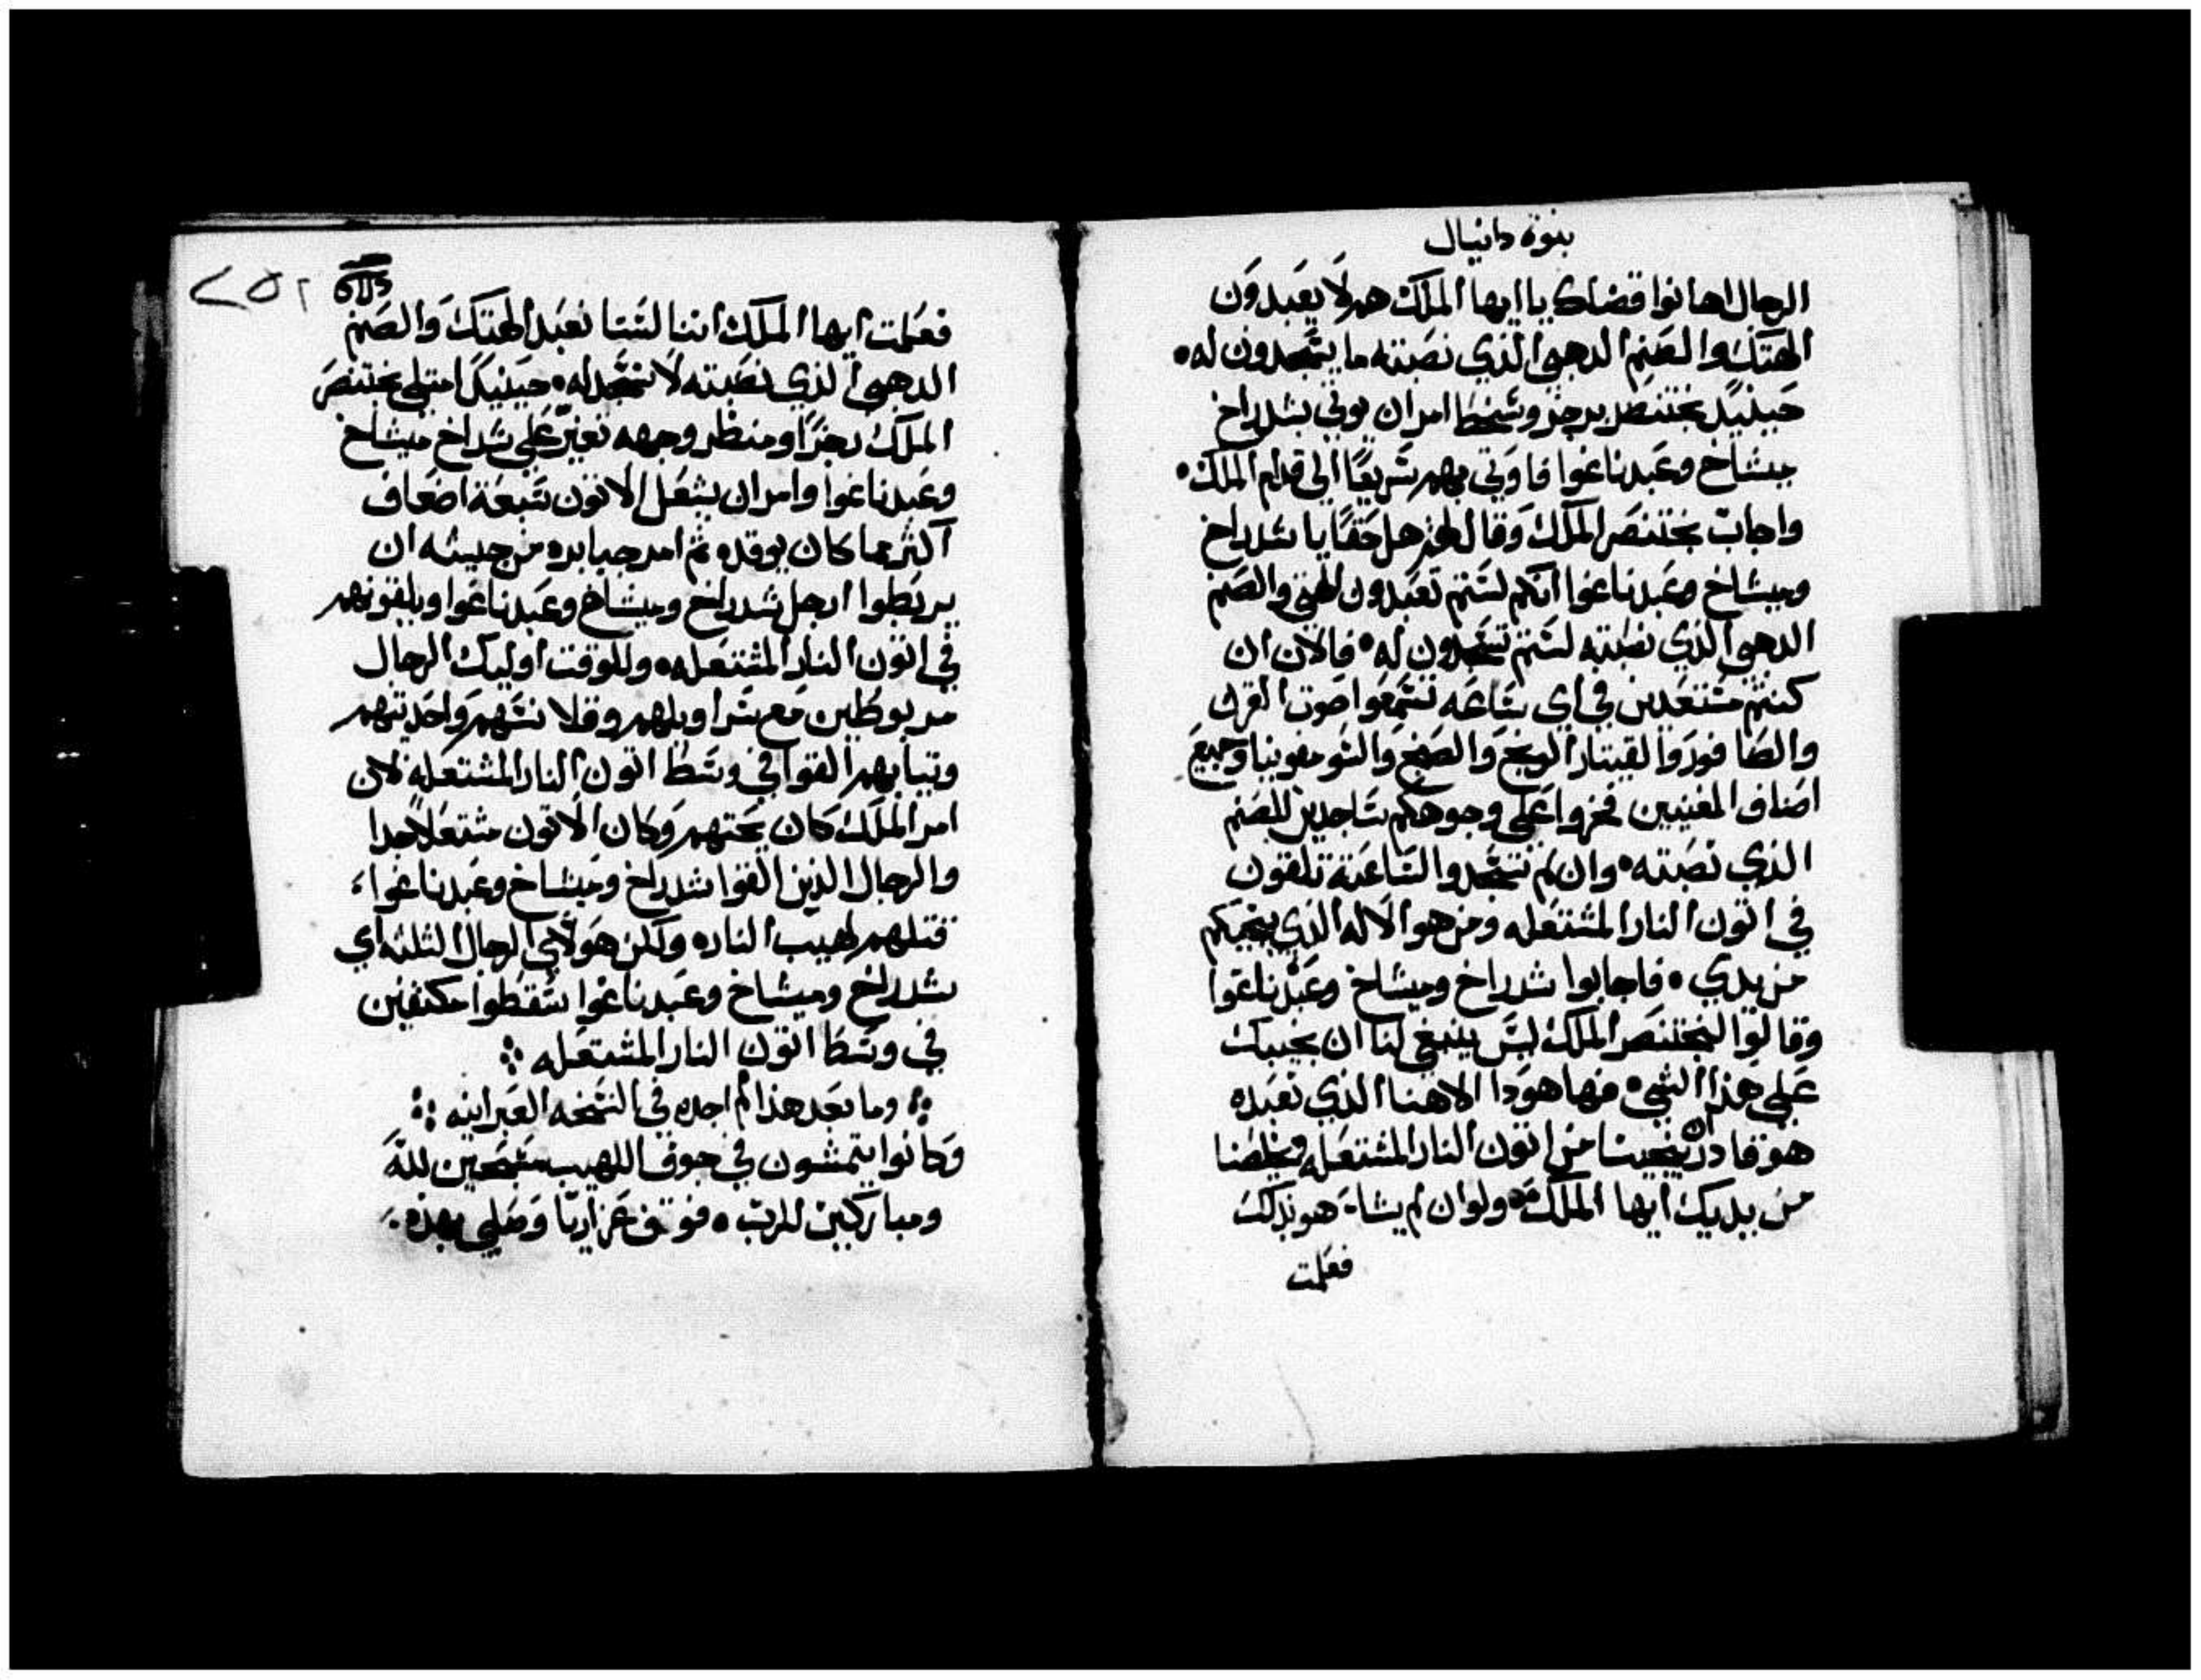 بنوة دانيال
الرجال اهانوا قضاك يا ايها الملك هم لا يعبدون
الهتك والصنم الدهبي الذي نصبته ما يسجدون له •
حينيدٍ بختنصر برجز وسخط امر ان يوتي بشدراخ
ميشاخ وعبدناغوا فاوتي بهم سريعًا الي قدام الملك •
واجاب بختنصر الملك وقال لهم هل حقًا يا شدراخ
وميشاخ وعبدناغوا انكم لستم تعبدون الهتي والصنم
الدهبي الذي نصبته لستم تسجدون له • فالان ان
كنتم مستعدين في اي ساعه تسمعوا صوت القرن
والصافور والقيتار الونج والصنج والسومفونيا وجميع
اصناف المغنيين فخروا علي وجوهكم ساجدين للصنم
الذي نصبته • وان لم تسجدوا الساعة تلقون
في اتون النار المشتعله ومن هو الاله الذي ينجيكم
من يدي • فاجابوا شدراخ وميشاخ وعبدناغوا
وقالوا لبختنصر الملك ليس ينبغي لنا ان نجيبك
علي هذا الشي • فها هو دا الاهنا الذي نعبده
هو قادر ان ينجينا من اتون النار المشتعله ويخلصنا
من يديك ايها الملك • ولو ان لم يشا هو بذلك
فعلمت
٢٥٢
فعلمت ايها الملك اننا لسنا نعبد الهتك والصنم
الدهبي الذي نصبته لا نسجد له • حينيدٍ امتلي بختنصر
الملك رجزًا ومنظر وجهه تغيّر علي شدراخ ميشاخ
وعبدناغوا وامر ان يشعل الاتون سبعة اضعاف
اكثر مما كان يوقده ثم امر جبابره من جيشه ان
يربطوا ارجل شدراخ وميشاخ وعبدناغوا ويلقونهم
في اتون النار المشتعله • وللوقت اوليك الرجال
مربوطين مع سراويلهم وقلانسهم واحديتهم
وتيابهم القوا في وسط اتون النار المشتعله لان
امر الملك كان يحتهم وكان الاتون مشتعلًا جدا
والرجال الذين القوا شدراخ وميشاخ وعبدناغوا
قتلهم لهيب النار • ولكن هولاي الرجال الثلثه اي
شدراخ وميشاخ وعبدناغوا سقطوا مكتفين
في وسط اتون النار المشتعله ⁘
⁘ وما بعد هذا لم اجده في النسخه العبرانيه ⁘
وكانوا يتمشون في جوف اللهيب مسبحين لله
ومباركين للرب • فوقف عزاريا وصلي بهذه •